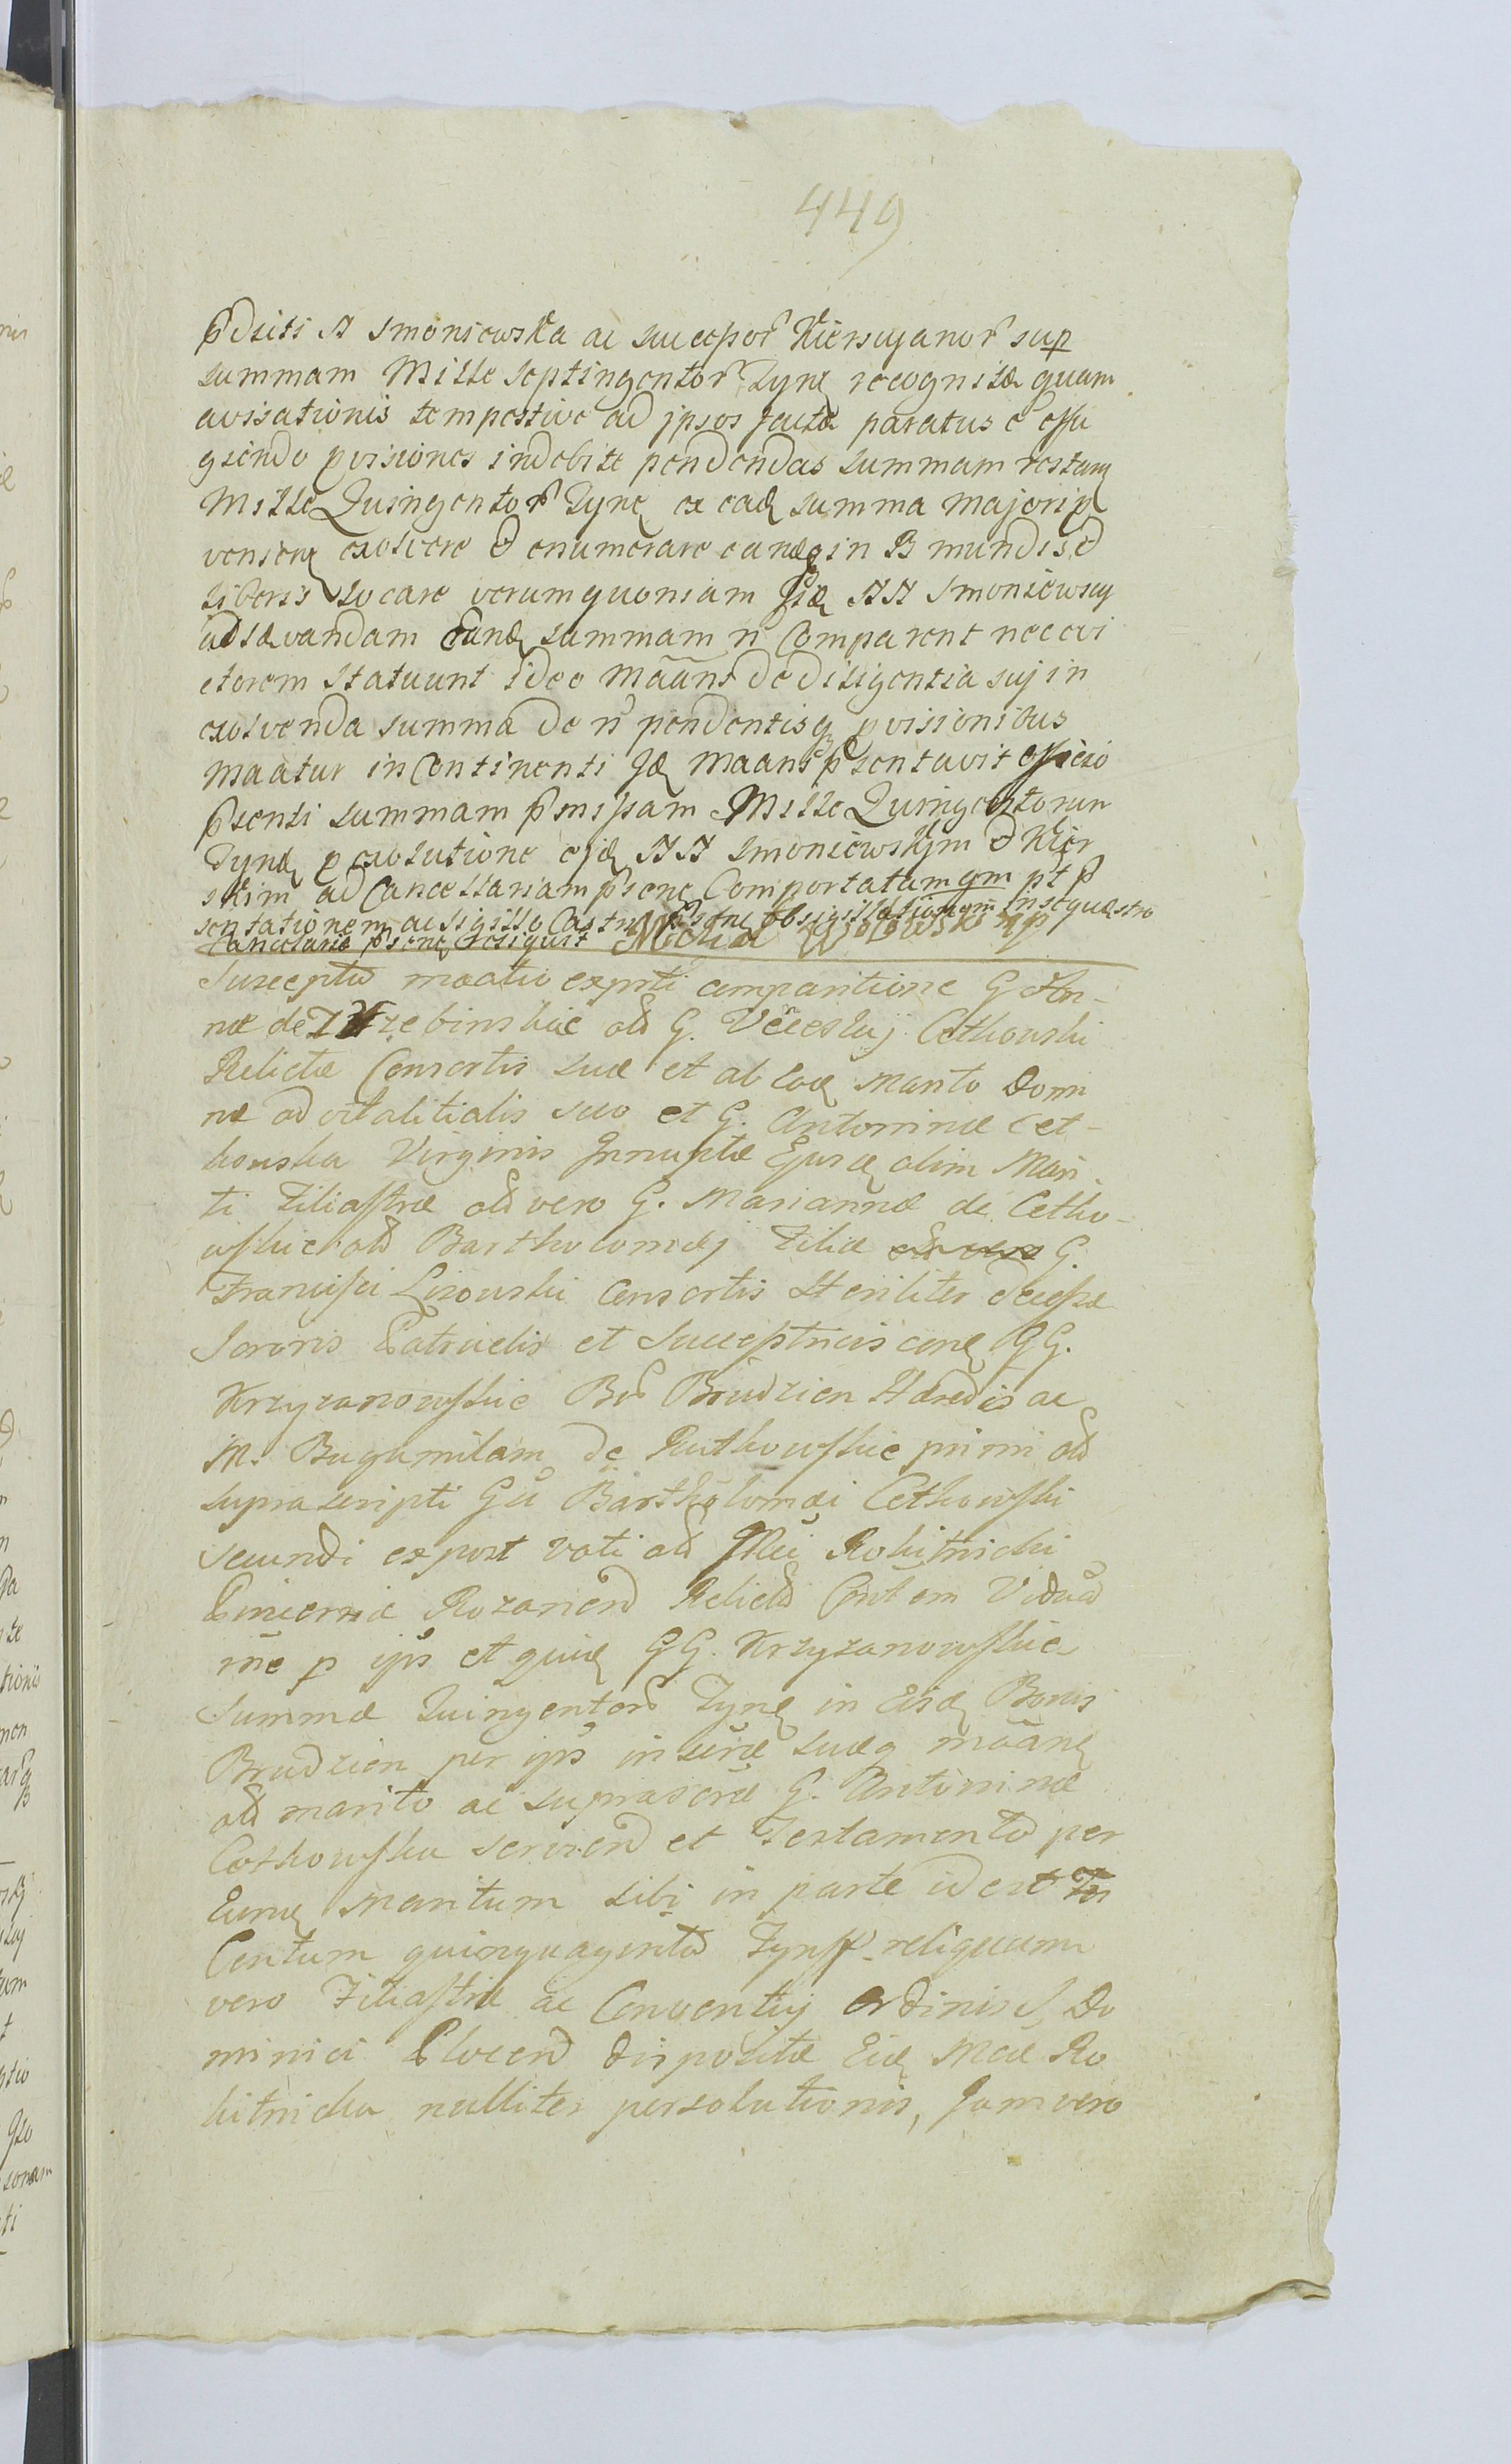 449
p̄dicti N Smoniewska ac succeßor̄ Kierscyanor̄ sup
summam Mille Septingentor̄ Tynę recognitæ quam
avisationis tempestive ad ipsos factæ paratus ē effu
giendo pvisiones indebite pendendas summam restanę
Mille Quingentor̄ Tynę ex eadę summa majori p
venienę exolvere & enumerare eamq in B mundis &
liberis locare verum quoniam Iidę NN Smoniewscy
ad levandam eandę summam n̄ Comparent nec evi
ctorem Statuunt ideo Māāns de diligentia suj in
exolvenda summa de n̄ pendentisq pvissionibus
Maatur in Continenti Idę Maans p̄sentavit officio
p̄senti summam p̄missam Mille Quingentorum
Tynę p exolutione ejdę NN Smoniewskim & Kier
skim ad Cancellariam p̄senę Comportatam qm pt p̄
sentationem ac sigillo Castri p̄senę obsigillationem in sequestro
Cancellariæ p̄senę reliquit Michał Wołowski mp
Susceptā maatio exprti comparitione G An-
næ de Trzebinskie olī G. Venceslaj Cethowski
Relictæ Consortis suæ et ab eodę Marito Domi
næ advitalitialis suo et G. Antoninæ Cet-
kowska Virginis Innuptæ Ejusdę olim Mari
ti Filiastræ olī vero G. Mariannæ de Cetko-
wskie olī Bartholomæj Filiæ G.
Francisci Lisowski Consortis Steriliter deceßæ
Sororis Patruelis et Succeßtricis conę GG.
Krzyzanowskie Br̄ Brudzien Hæredis ac
M. Bugumilam de Rutkowskie primi olī
suprascripti Gū Bartholomæi Cethowski
secundi expost voti olī Rokitnicki
Pincernæ Rozanenī Relictā Cōntem Viduā
rn̄e p ips et quiuę GG. Krzyzanowskie
Summæ Quingentorī Tynę in Eisdę Bonis
Brudzien per ips inscræ suæq māānę
olī marito ac suprascræ G. Antoninæ
Cethowska servienī et Testamentō per
Eumdę Maritum sibi in parte id est
Centum quinquagintā Tynff reliquam
vero Filiastræ ac Conventuj Ordinis S. Do
minici Plocenī dispositæ Eidę Mæ Ro
kitnicka nulliter persolutionis, Jam vero